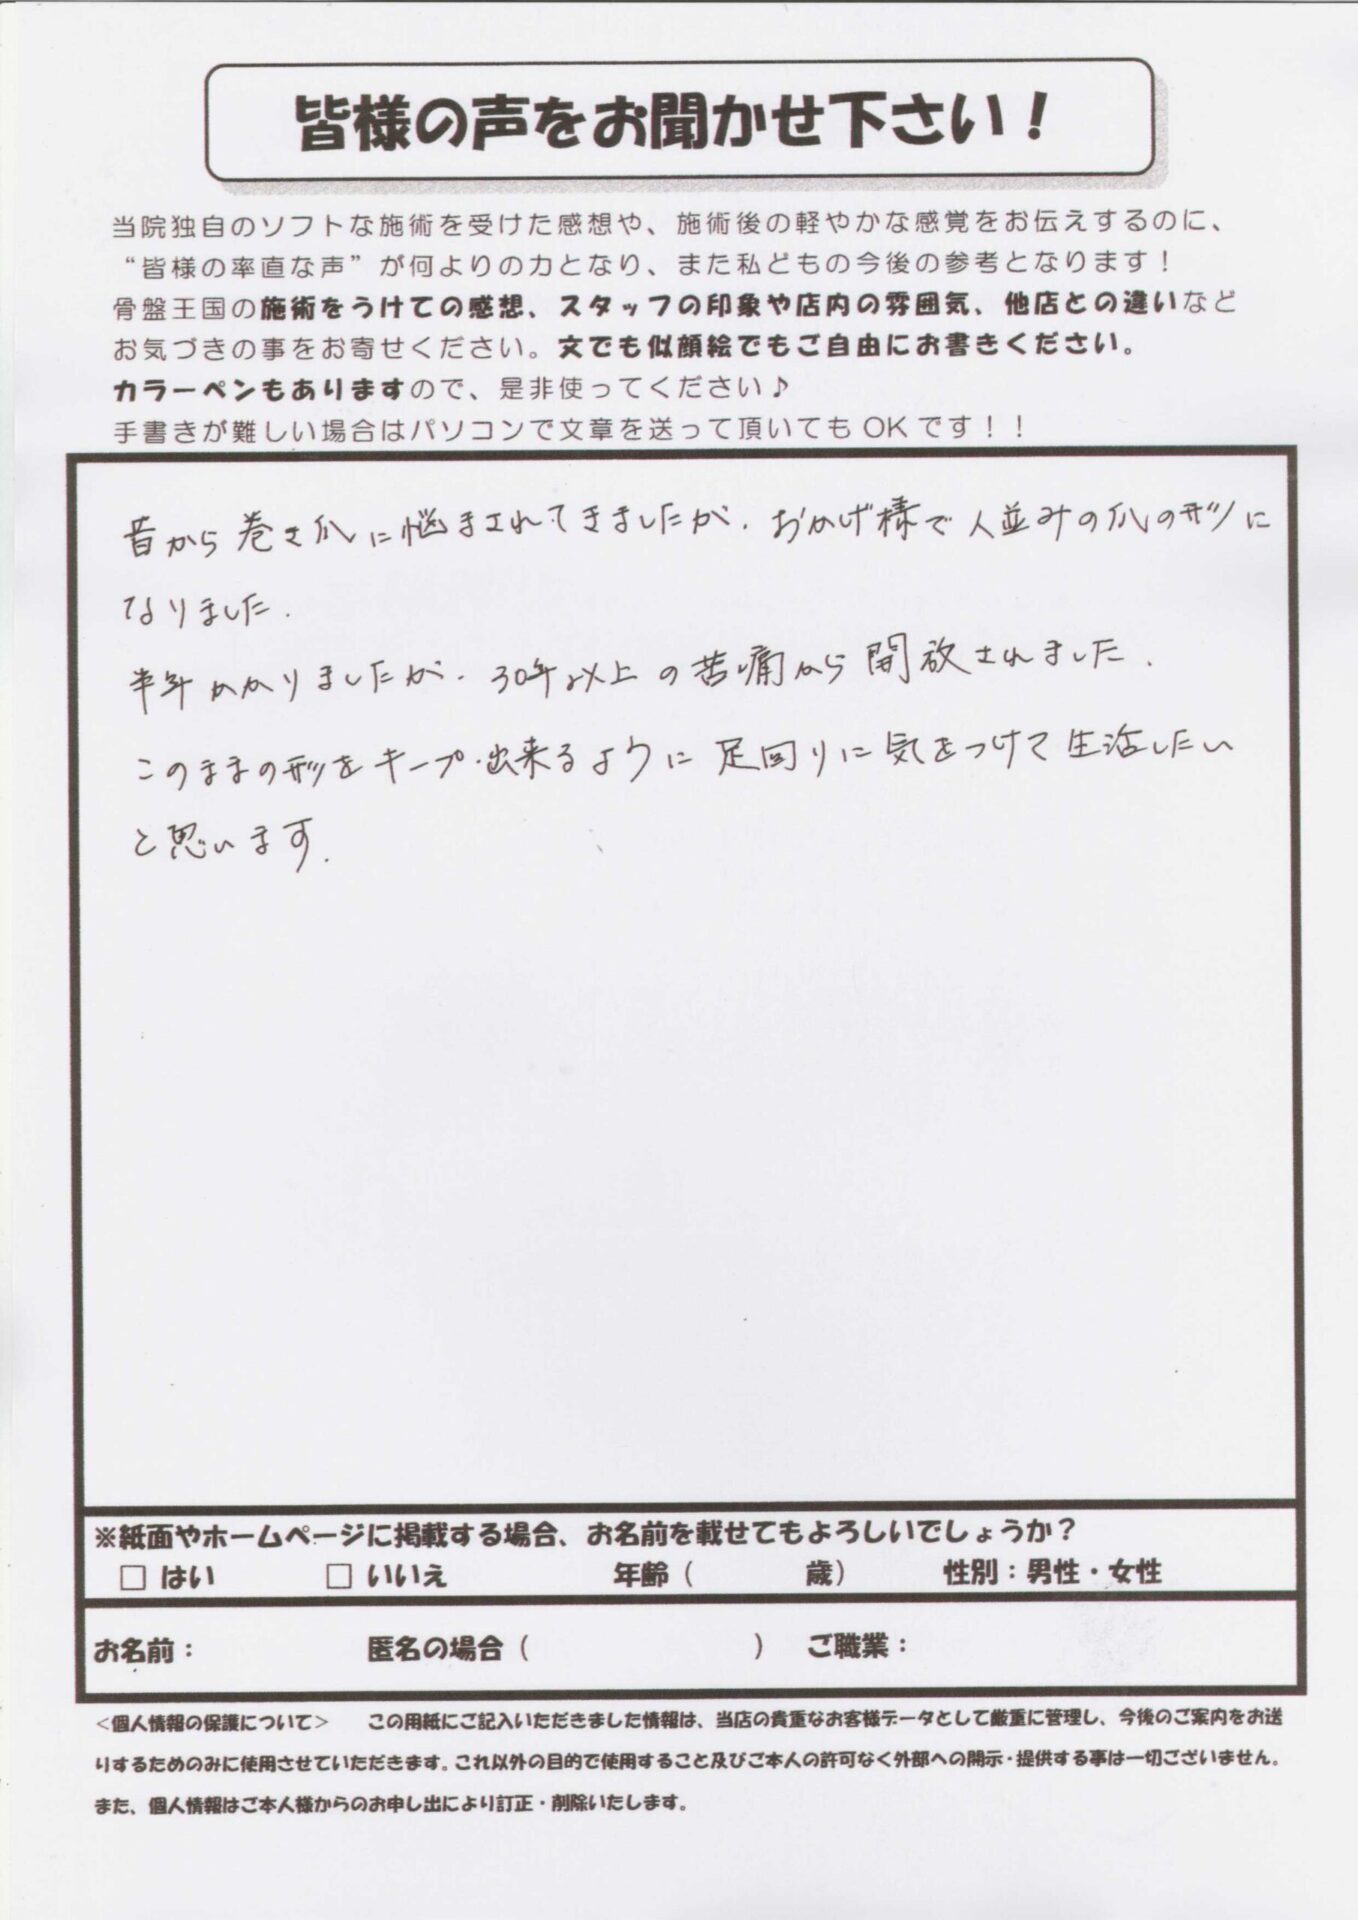 皆様の声をお聞かせ下さい！
当院独自のソフトな施術を受けた感想や、施術後の軽やかな感覚をお伝えするのに、
“皆様の率直な声”が何よりの力となり、また私どもの今後の参考となります！
骨盤王国の施術をうけての感想、スタッフの印象や店内の雰囲気、他店との違いなど
お気づきの事をお寄せください。文でも似顔絵でもご自由にお書きください。
カラーペンもありますので、是非使ってください♪
手書きが難しい場合はパソコンで文章を送って頂いてもOKです！！
昔から巻き爪に悩まされてきましたが、おかげ様で人並みの爪の形に
なりました。
半年かかりましたが、30年以上の苦痛から開放されました。
このままの形をキープ出来るように足回りに気をつけて生活したい
と思います。
※紙面やホームページに掲載する場合、お名前を載せてもよろしいでしょうか？
□ はい □ いいえ 年齢（ 歳） 性別：男性・女性
お名前： 匿名の場合（ ） ご職業：
＜個人情報の保護について＞ この用紙にご記入いただきました情報は、当店の貴重なお客様データとして厳重に管理し、今後のご案内をお送
りするためのみに使用させていただきます。これ以外の目的で使用すること及びご本人の許可なく外部への開示・提供する事は一切ございません。
また、個人情報はご本人様からのお申し出により訂正・削除いたします。